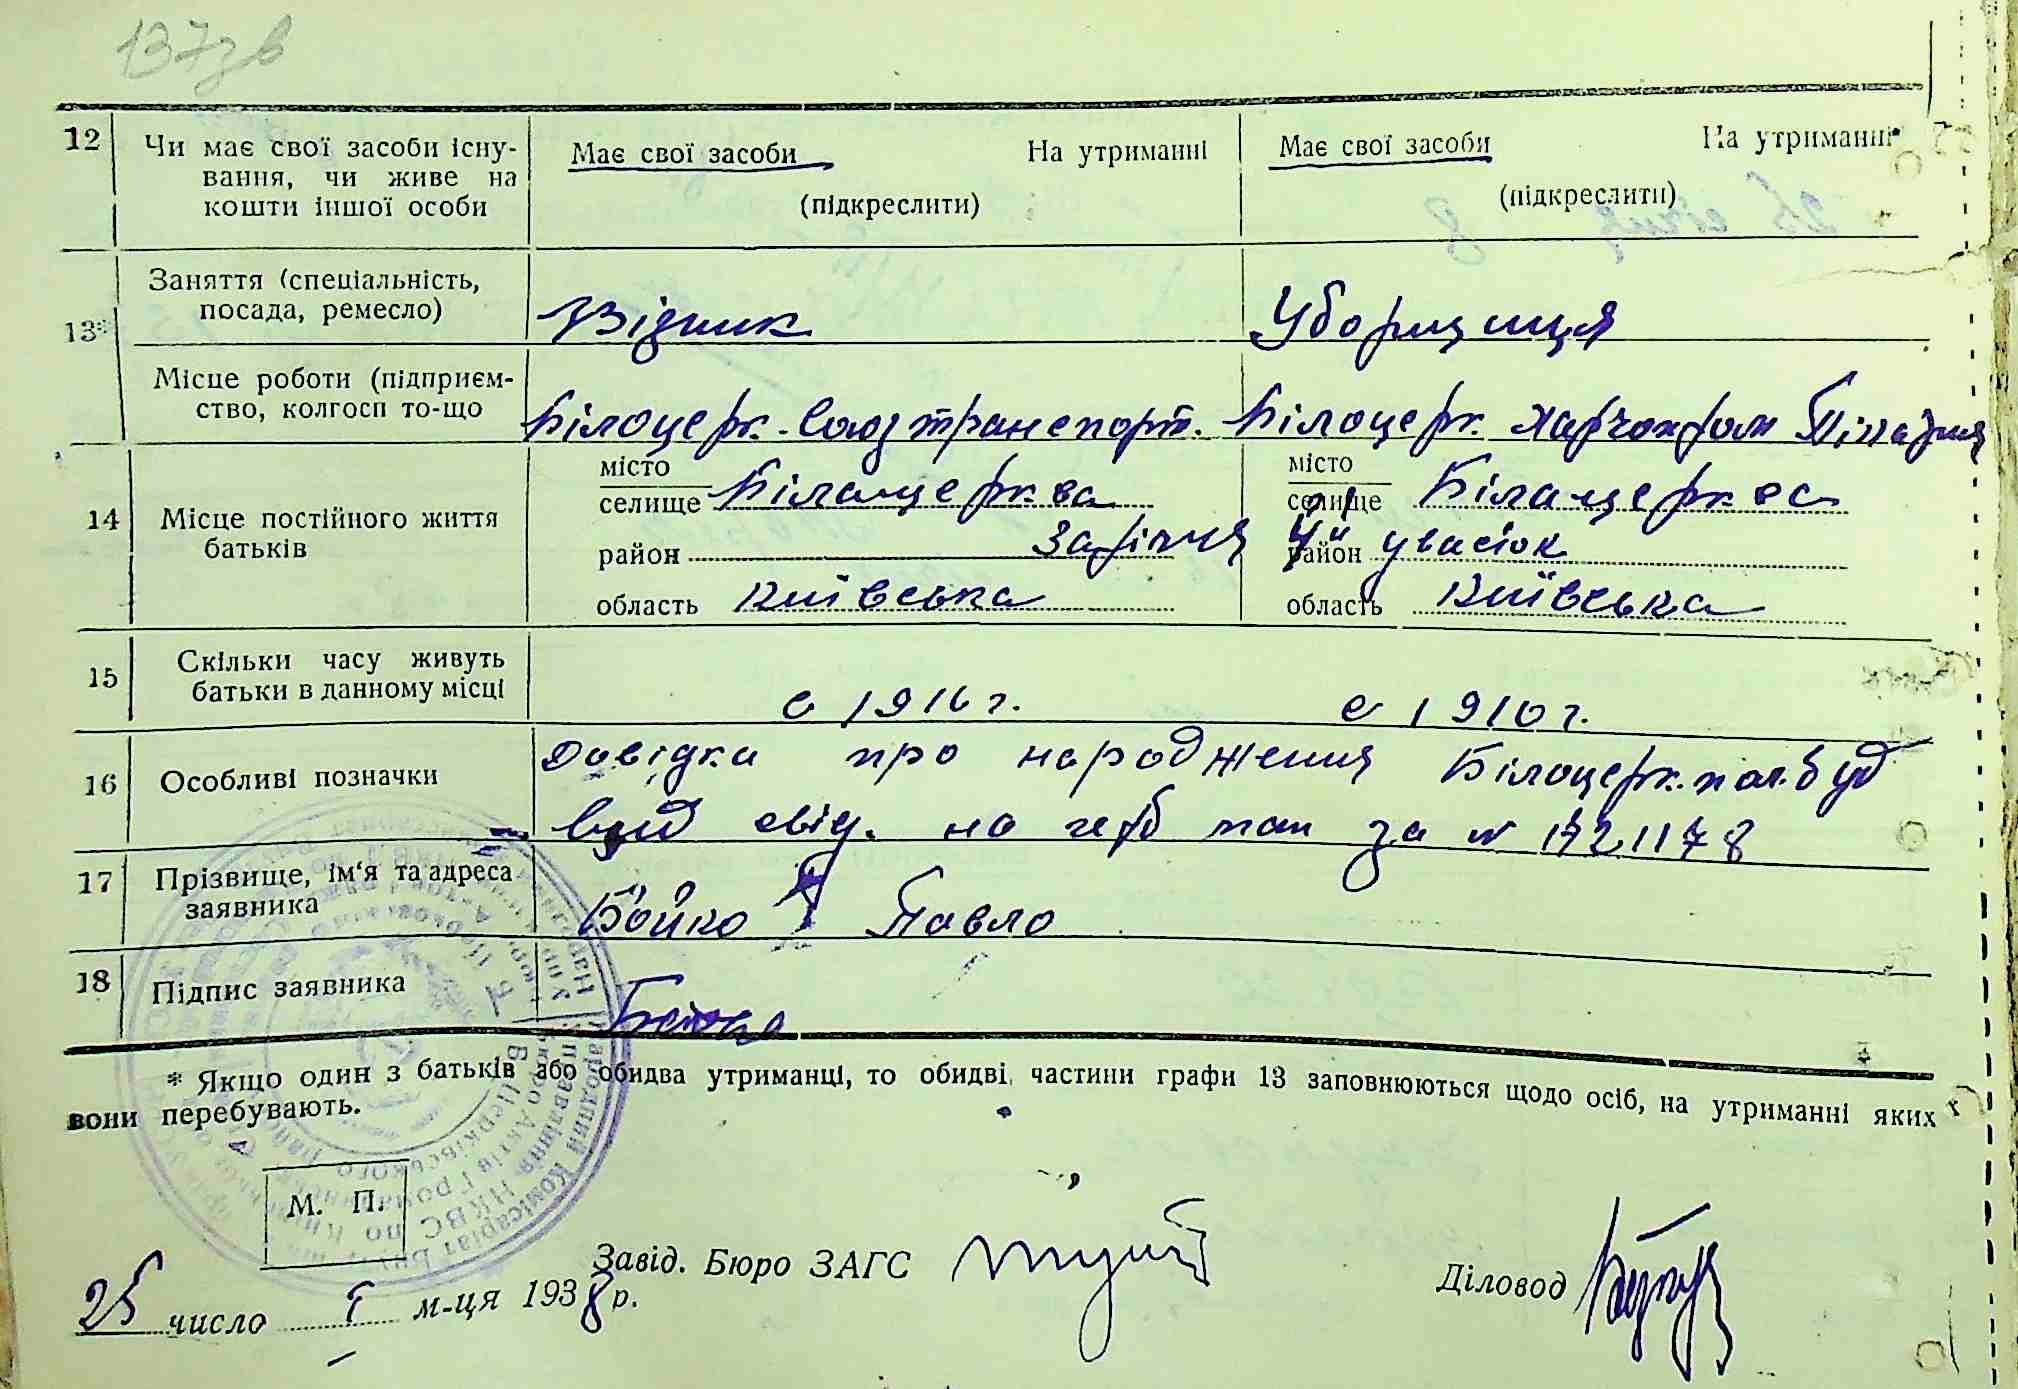 137зв
12 Чи має свої засоби існу-
вання, чи живе на
кошти іншої особи
Має свої засоби На утриманні
(підкреслити)
Має свої засоби На утриманні
(підкреслити)
13* Заняття (спеціальність,
посада, ремесло)
Візник
Уборщиця
Місце роботи (підприєм-
ство, колгосп то-що
Білоцерк. Союзтранспорт.
Білоцерк. Харчопром
14 Місце постійного життя
батьків
місто
селище Білацерква
район Зарічча
область Київська
місто
селище Білацерква
район
область Київська
15 Скільки часу живуть
батьки в данному місці
с 1916 г.
с 1910 г.
16 Особливі позначки
Довідка про народження Білоцерк. пол. буд
свід. на за № 1721178
17 Прізвище, ім'я та адреса
заявника
Бойко Павло
18 Підпис заявника
Бойко
* Якщо один з батьків або обидва утриманці, то обидві частини графи 13 заповнюються щодо осіб, на утриманні яких
вони перебувають.
М. П.
Завід. Бюро ЗАГС
Діловод
25 число І м-ця 1938 р.